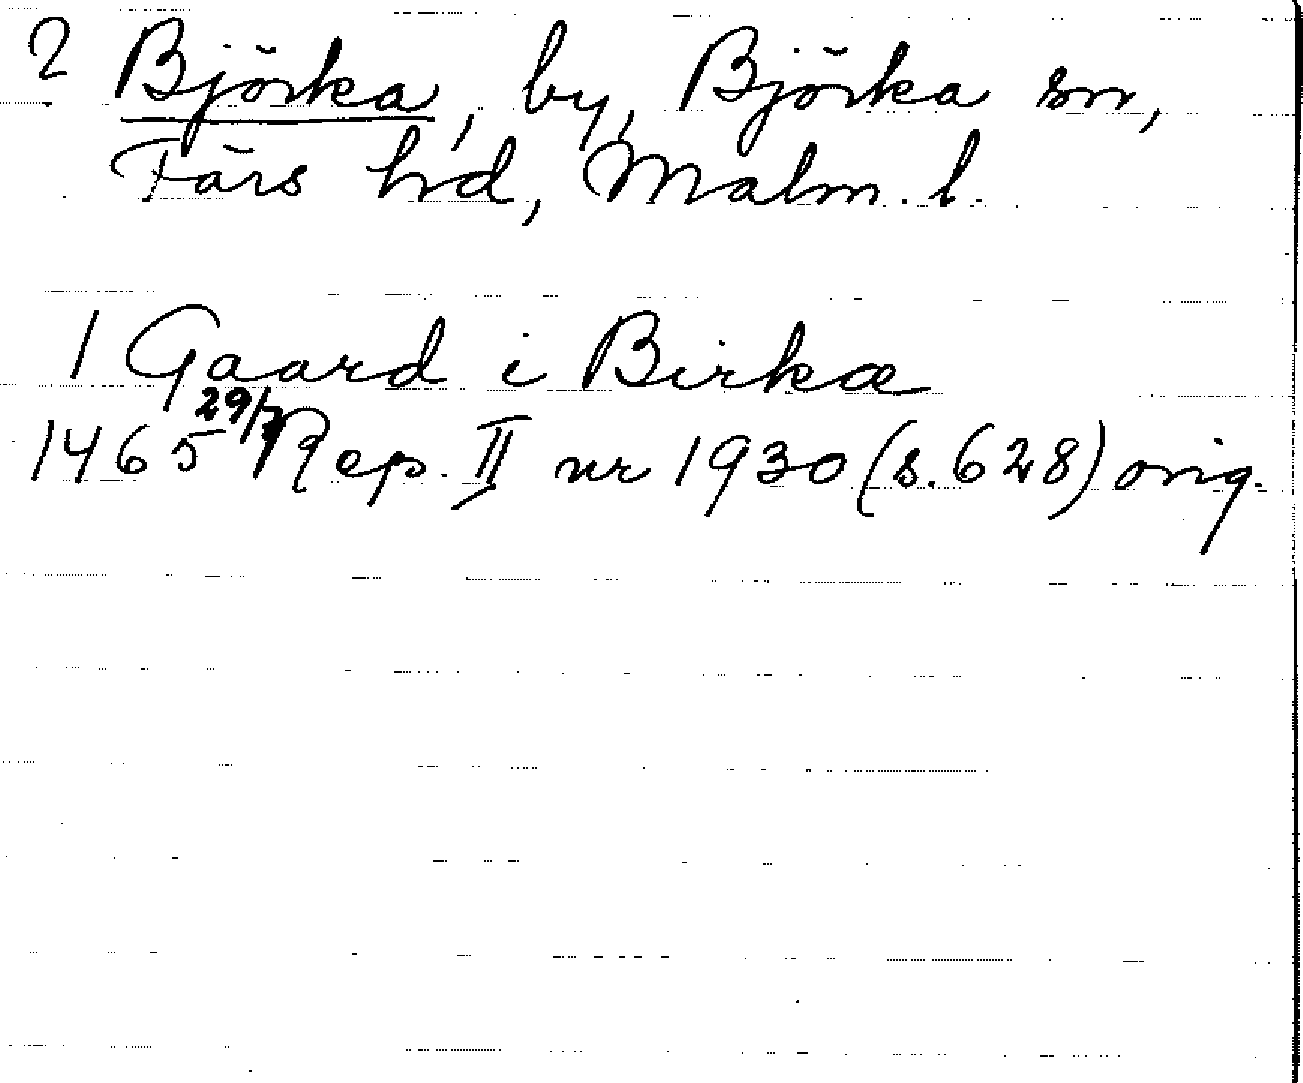 ? Björka, by, Björka sn,
Färs hd, Malm. l.
1 Gaard i Birkæ
1465 29/7 Rep. II nr 1930 (s. 628) orig.